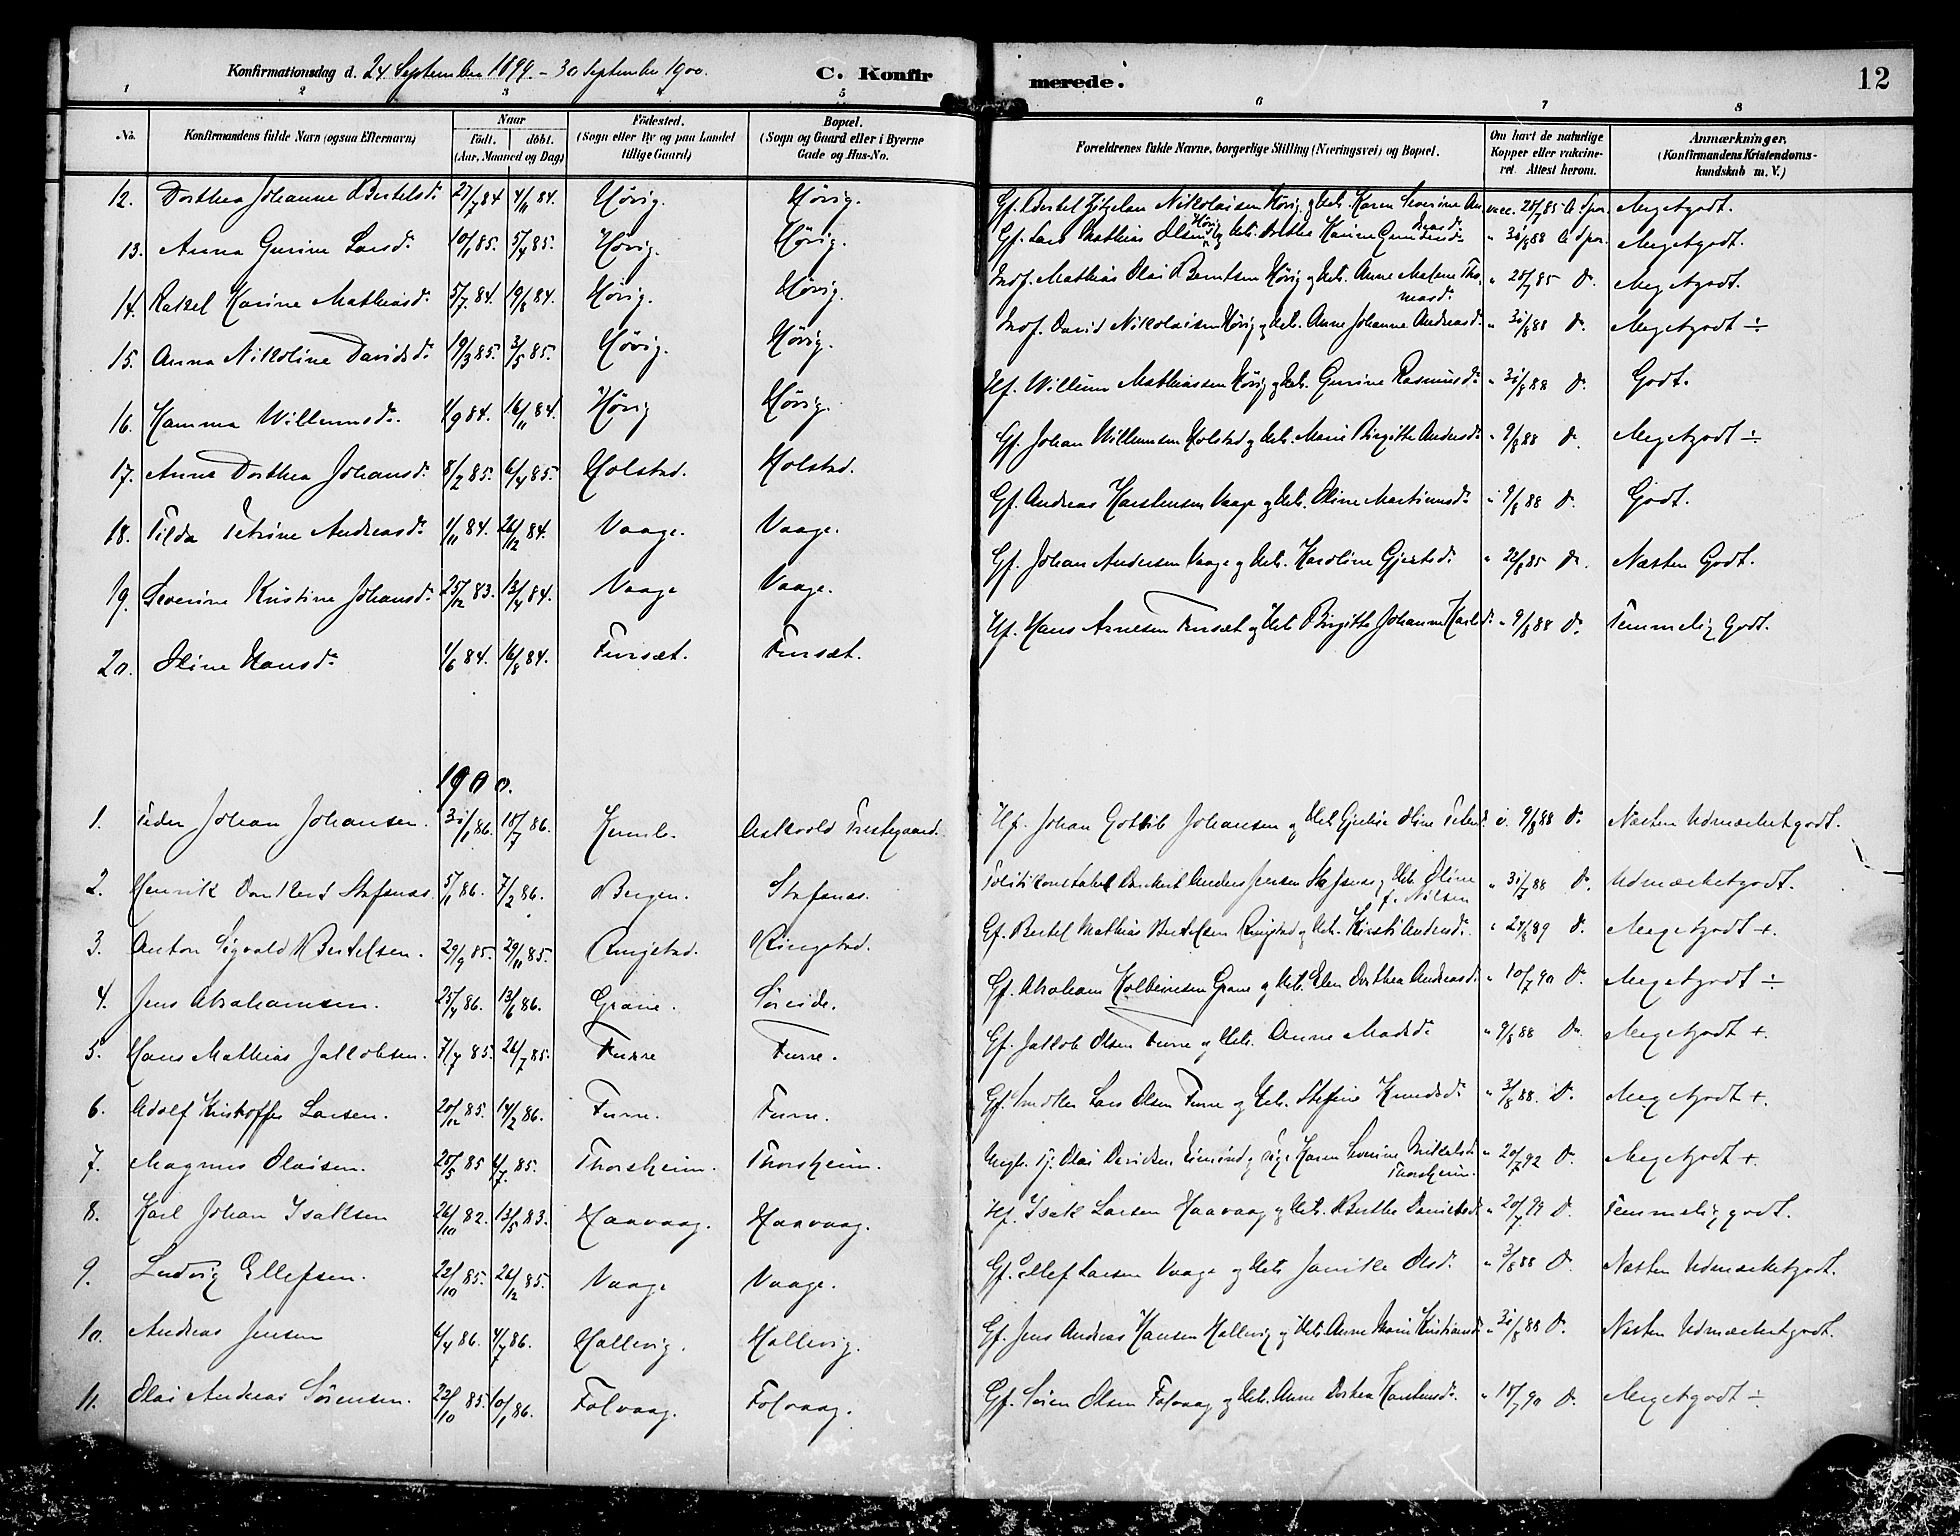 Konfirmationsdag d. 24 September 1899. – 30 September 1900. C. Konfirmerede. 12
1 2 3 4 5 6 7 8
No. Konfirmandens fulde Navn (ogsaa Efternavn) Naar født. døbt. (Aar, Maaned og Dag) Fødested. (Sogn eller By og paa Landet tillige Gaard) Bopæl. (Sogn og Gaard eller i Byerne Gade og Hus-No. Forældrenes fulde Navne, borgerlige Stilling (Næringsvei) og Bopæl. Om havt de naturlige Kopper eller vaccineret. Attest herom. Anmærkninger. (Konfirmandens Kristendomskundskab m. V.)
12. Dorthea Johanne Bertelsd. 27/7 84 4/11 84. Hövig. Hövig. Gf. Bertel Nikolaisen Hövig og Hstr. Karen Severine vacc. 28/7 85 Megetgodt.
13. Anna Gurine Larsd. 10/1 85. 5/4 85. Hövig. Hövig. Gf. Lars Mathias Olsen Hövig og Hstr. Dorthea Karine " 30/8 88 Megetgodt.
14. Rakel Karine Mathiasd. 5/7 84. 19/8 84. Hövig. Hövig. Indf. Mathias Olai Berntsen Hövig og Hstr. Anne Malene Thomasd. " 28/7 85 D. Megetgodt.
15. Anna Nikoline Davidsd. 19/3 85. 3/5 85. Hövig. Hövig. Indf. David Nikolaisen Hövig og Hstr. Anne Johanne Andreasd. " 31/8 88 D. Megetgodt ÷
16. Hamma Willumsd. 1/9 84. 16/11 84. Hövig Hövig. Hf. Willum Mathiassen Hövig og Hstr. Gurine Rasmusd. " 31/8 88 D. Godt.
17. Anne Dorthea Johansd. 8/2 85. 6/4 85. Holstad. Holstad. Gf. Johan Willumsen Holstad og Hstr. Marie Birgitte Andersd. " 9/8 88 D. Megetgodt ÷
18. Tilda Petrine Andreasd. 1/11 84. 26/12 84. Vaage. Vaage. Gf. Andreas Karstensen Vaage og Hstr. Oline Martinusd. " 9/8 88 D. Godt.
19. Severine Kristine Johansd. 25/12 83. 13/4 84. Vaage Vaage. Gf. Johan Andersen Vaage og Hstr. Karoline Gjertsd. " 22/8 85 D. Næsten Godt.
20. Oline Hansd. 1/6 84. 16/8 84. Fursæt. Fursæt. Hf. Hans Arnesen Fursæt og Hstr. Birgitte Johanne Karlsd. " 9/8 88 D. Temmelig Godt.
1900.
1. Peder Johan Johansen. 31/1 86. 18/7 86. Askvold Prestegaard. Hf. Johan Gotlib Johansen og Hstr. Oline v. 9/8 88 D. Næsten Udmærketgodt.
2. Henrik Dankert Stafsnes 5/1 86. 7/2 86. Bergen. Stafsnes. Politikonstabel Dankert Anders Iversen Stafsnes og Hstr. Oline f. Nilsen " 31/7 88 D. Udmærketgodt.
3. Anton Sigvald Bertelsen. 29/9 85. 29/11 85. Ringstad. Ringstad. Gf. Bertel Mathias Bertelsen Ringstad og Hstr. Kirsti Andersd. " 24/8 89 D. Megetgodt +.
4. Jens Abrahamsen. 25/4 86. 13/6 86. Grane. Söreide. Gf. Abraham Kolbeinsen Grane og Hstr. Elen Dorthea Andreasd. " 10/7 90 D. Megetgodt ÷
5. Hans Mathias Jakobsen. 7/7 85. 26/7 85. Furre Furre. Gf. Jakob Olsen Furre og Hstr. Anne Madsd. " 9/8 88 D. Megetgodt +
6. Adolf Kristoffer Larsen. 20/12 85. 14/2 86. Furre. Furre. Gf. Snedker Lars Olsen Furre og Hstr. Stefine Knudsd. " 3/8 88. D. Megetgodt +.
7. Magnus Olaisen. 25/5 85 6/7 85. Thorsheim. Thorsheim. Ungk. Tj. Olai Davidsen og Pige Karen Severine Thorsheim. " 20/7 92 D. Megetgodt +.
8. Karl Johan Isaksen 26/10 82. 13/5 83. Haavaag. Haavaag. Hf. Isak Larsen Haavaag og Hstr. Berthe Danielsd. " 20/7 99 D. Temmelig godt.
9. Ludvig Ellefsen. 22/10 85. 26/12 85. Vaage Vaage. Gf. Ellef Larsen Vaage og Hstr. Janike Olsd. " 3/8 88 D. Næsten Udmærketgodt.
10. Andreas Jensen 6/4 86. 4/7 86. Hallevig. Hallevig. Gf. Jens Andreas Hansen Hallevig og Hstr. Anne Marie Kristiansd. " 31/8 88 D. Næsten Udmærketgodt.
11. Olai Andreas Sörensen. 22/10 85. 10/1 86. Folvaag. Folvaag. Gf. Sören Olsen Folvaag og Hstr. Anne Dorthea Karstensd. " 18/7 90 D. Megetgodt ÷